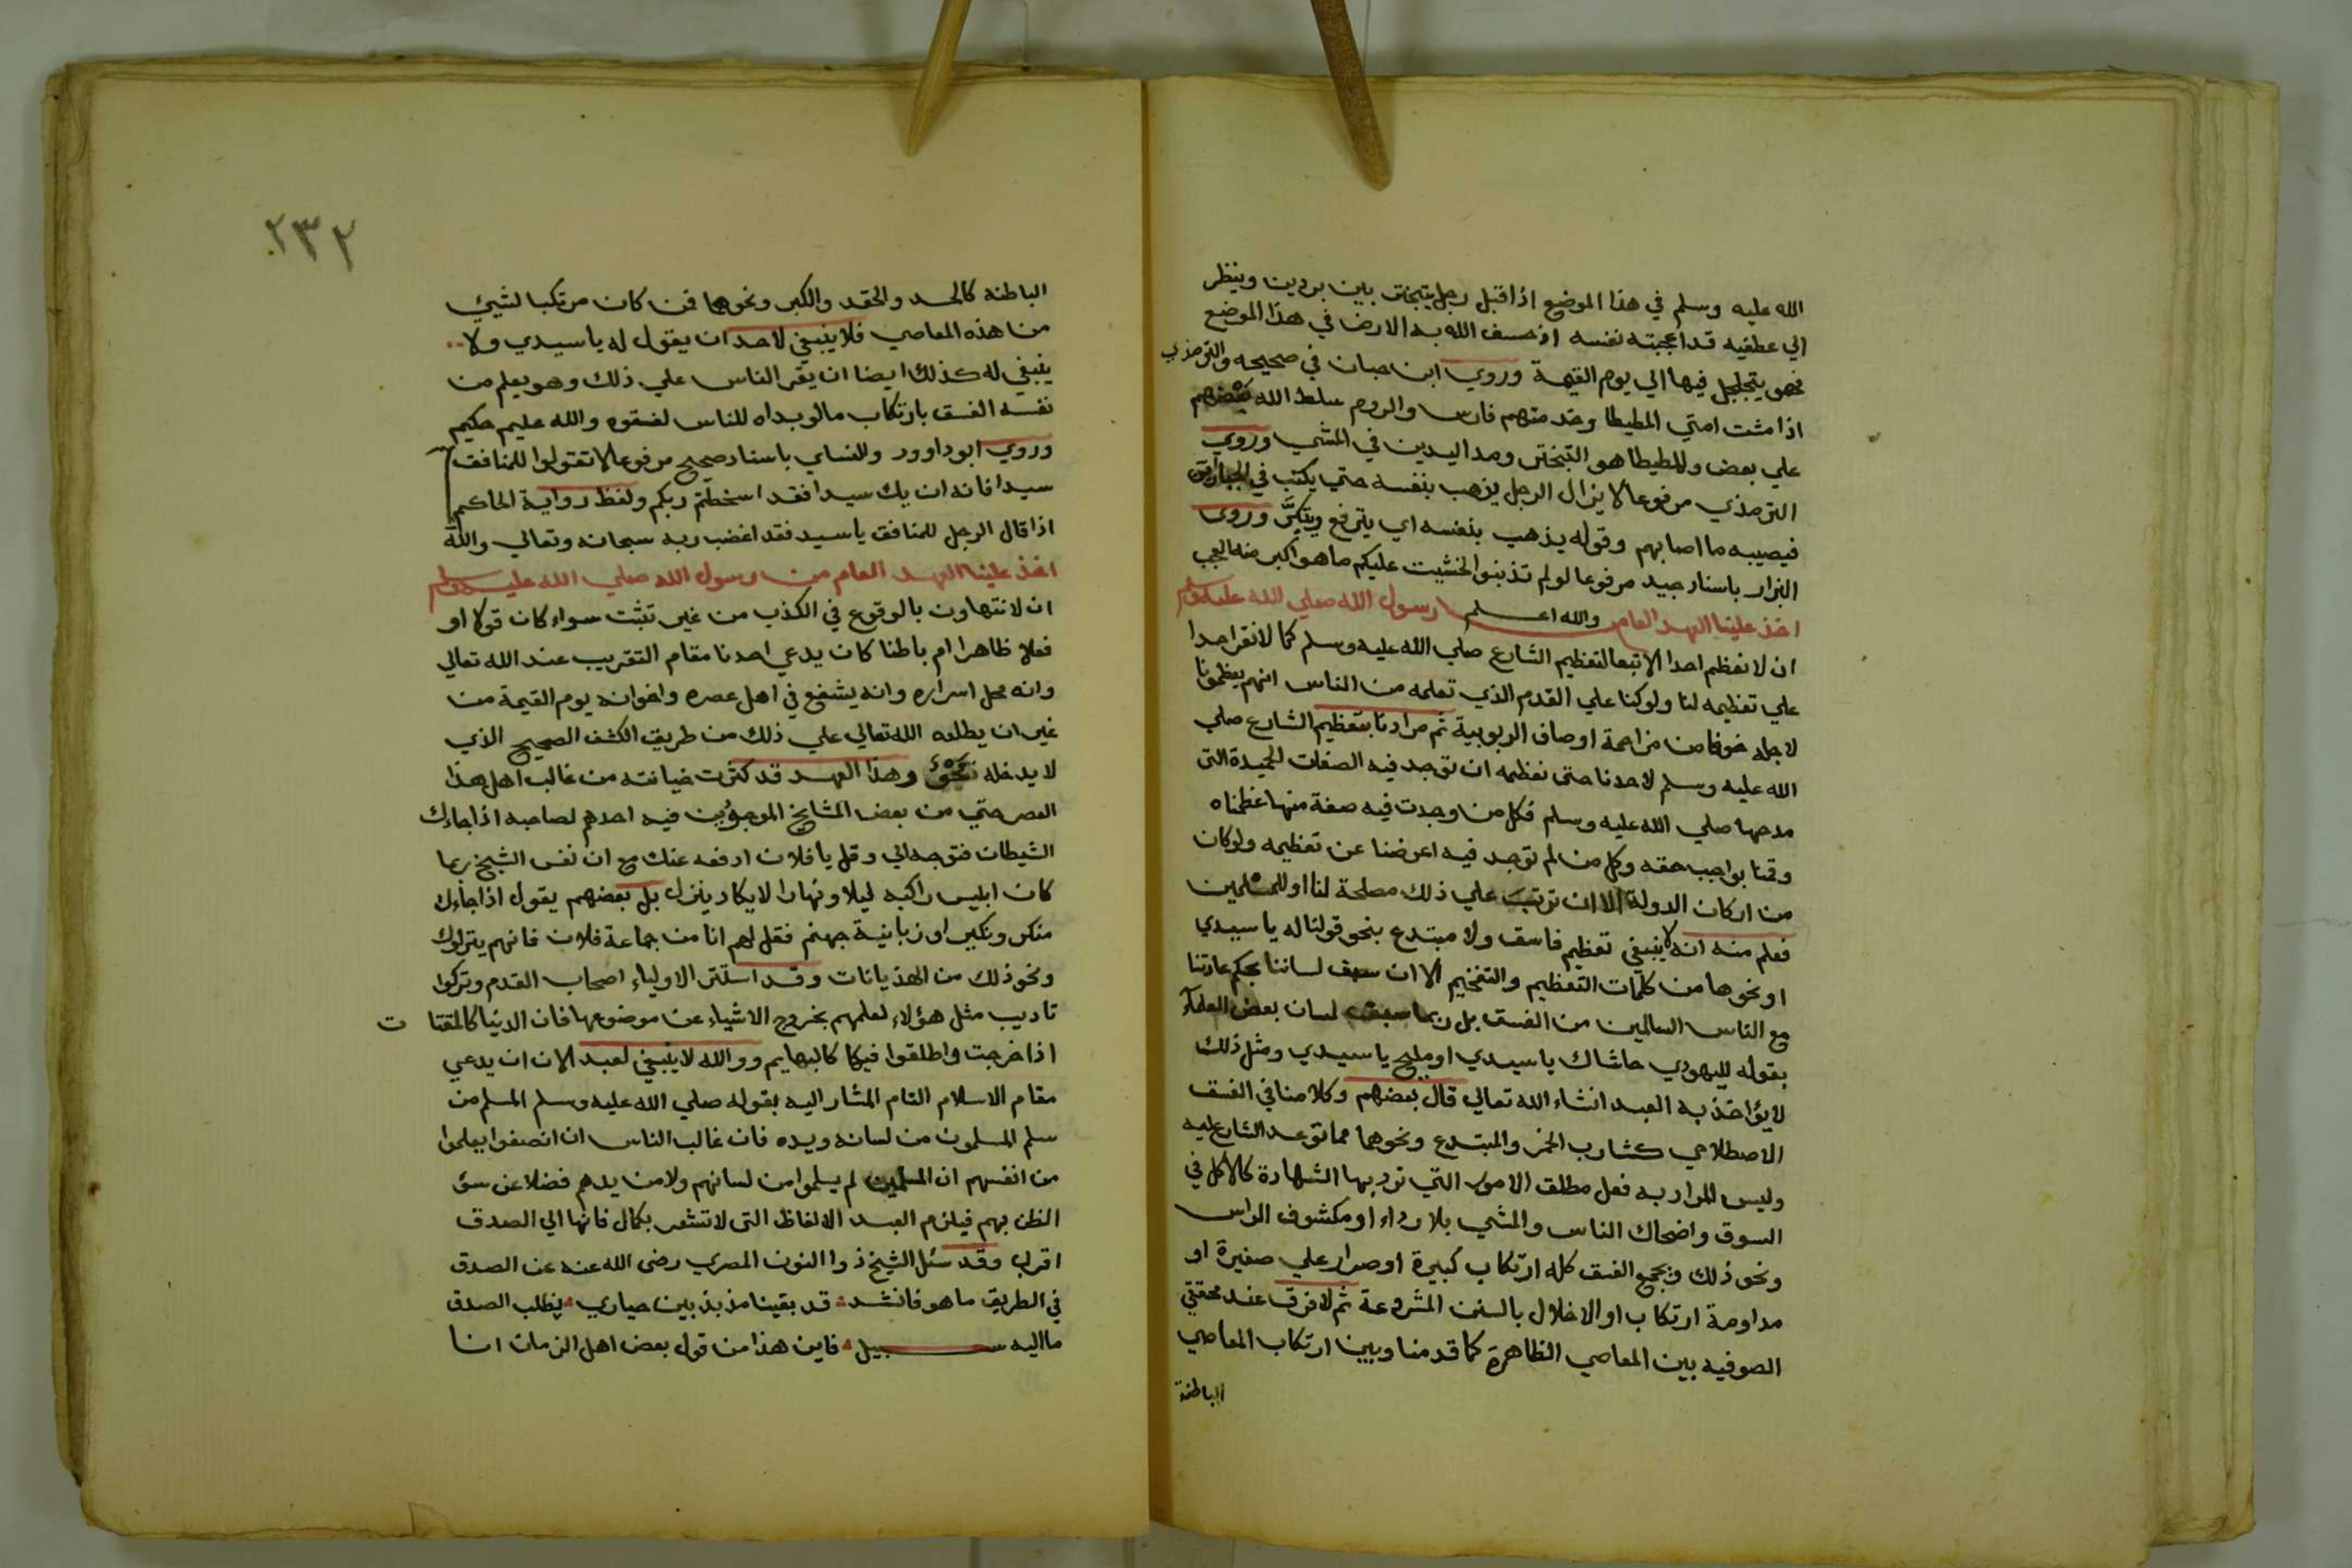 الله عليه وسلم في هذا الموضع اذ اقبل رجل يتبختر بين بردين وينظر
الي عطفيه قد اعجبته نفسه اذ خسف الله به الارض في هذا الموضع
فهو يتجلجل فيها الي يوم القيمة وروي ابن حبان في صحيحه والترمذي
اذا مشت امتي المطيطا وخدمتهم فارس والروم سلط الله بعضهم
علي بعض والمطيطا هو التبختر ومد اليدين في المشي وروي
الترمذي مرفوعا لا يزال الرجل يذهب بنفسه حتي يكتب في الجبارين
فيصيبه ما اصابهم وقوله يذهب بنفسه اي يترفع ويتكبر وروي
البزار باسناد جيد مرفوعا لو لم تذنبوا لخشيت عليكم ما هو اكبر منه العجب
اخذ علينا العهد العام والله اعلم رسول الله صلي الله عليه وسلم
ان لا نعظم احدا الا تبعا لتعظيم الشارع صلي الله عليه وسلم كما لا نقر احدا
علي تعظيمه لنا ولو كنا علي القدم الذي تعلمه من الناس انهم يعظمونا
لاجله خوفا من مزاحمة اوصاف الربوبية ثم مرادنا بتعظيم الشارع صلي
الله عليه وسلم لاحدنا حتى نعظمه ان توجد فيه الصفات الحميدة التي
مدحها صلي الله عليه وسلم فكل من وجدت فيه صفة منها عظمناه
وقمنا بواجب حقه وكل من لم توجد فيه اعرضنا عن تعظيمه ولو كان
من اركان الدولة الا ان ترتب علي ذلك مصلحة لنا او للمسلمين
فعلم منه انه لا ينبغي تعظيم فاسق ولا مبتدع بنحو قولنا له يا سيدي
او نحوها من كلمات التعظيم والتفخيم الا ان سبق لساننا بحكم عادتنا
مع الناس السالمين من الفسق بل ربما سبق لسان بعض العلماء
بقوله لليهودي حاشاك يا سيدي او مليح يا سيدي ومثل ذلك
لا يؤاخذ به العبد انشاء الله تعالي قال بعضهم وكلامنا في الفسق
الاصطلاحي كشارب الخمر والمبتدع ونحوهما مما توعد الشارع عليه
وليس المراد به فعل مطلق الامور التي ترد بها الشهادة كالاكل في
السوق واضحاك الناس والمشي بلا رداء او مكشوف الراس
ونحو ذلك ويجمع الفسق كله ارتكاب كبيرة او صرار علي صغيرة او
مداومة ارتكاب او الاخلال بالسنن المشروعة ثم لا فرق عند محققي
الصوفيه بين المعاصي الظاهرة كما قدمنا وبين ارتكاب المعاصي
الباطنة
٢٣٢
الباطنة كالحسد والحقد والكبر ونحوها فمن كان مرتكبا لشيئ
من هذه المعاصي فلا ينبغي لاحد ان يقول له يا سيدي ولا
ينبغي له كذلك ايضا ان يقر الناس علي ذلك وهو يعلم من
نفسه الفسق بارتكاب ما لو بداه للناس لفسقوه والله عليم حكيم
وروي ابو داوود والنساي باسناد صحيح مرفوعا لا تقولوا للمنافق
سيدا فانه ان يك سيدا فقد اسخطتم ربكم ولفظ رواية الحاكم
اذا قال الرجل للمنافق يا سيد فقد اغضب ربه سبحانه وتعالي والله
اخذ علينا العهد العام من رسول الله صلي الله عليه وسلم
ان لا نتهاون بالوقوع في الكذب من غير تثبت سواء كان قولا او
فعلا ظاهرا ام باطنا كان يدعي احدنا مقام التقريب عند الله تعالي
وانه محل اسراره وانه يشفع في اهل عصره واخوانه يوم القيمة من
غير ان يطلعه الله تعالي علي ذلك من طريق الكشف الصحيح الذي
لا يدخله محو وهذا العهد قد كثرت خيانته من غالب اهل هذا
العصر حتي من بعض المشايخ الموجودين فيه احدهم لصاحبه اذا جاءك
الشيطان فتوجه الي وقل يا فلان ادفعه عنك مع ان نفس الشيخ ربما
كان ابليس راكبه ليلا ونهارا لا يكاد ينزل بل بعضهم يقول اذا جاءك
منكر ونكير او زبانية جهنم فقل لهم انا من جماعة فلان فانهم يتركوك
ونحو ذلك من الهذيانات وقد استتر الاولياء اصحاب القدم وتركوا
تاديب مثل هؤلاء لعلمهم بخروج الاشياء عن موضوعها فان الدنيا كالمقتا ت
اذا خرجت واطلقوا فيكا كالبهايم ووالله لا ينبغي لعبد الان ان يدعي
مقام الاسلام التام المشار اليه بقوله صلي الله عليه وسلم المسلم من
سلم المسلمون من لسانه ويده فان غالب الناس ان انصفوا يعلموا
من انفسهم ان المسلمين لم يسلموا من لسانهم ولا من يدهم فضلا عن سؤ
الظن بهم فيلزم العبد الالفاظ التي لا تشعر بكمال فانها الي الصدق
اقرب وقد سئل الشيخ ذوا النون المصري رضى الله عنه عن الصدق
في الطريق ما هو فانشد قد بقينا مذبذبين حياري نطلب الصدق
ما اليه سبيل فاين هذا من قول بعض اهل الزمان انا